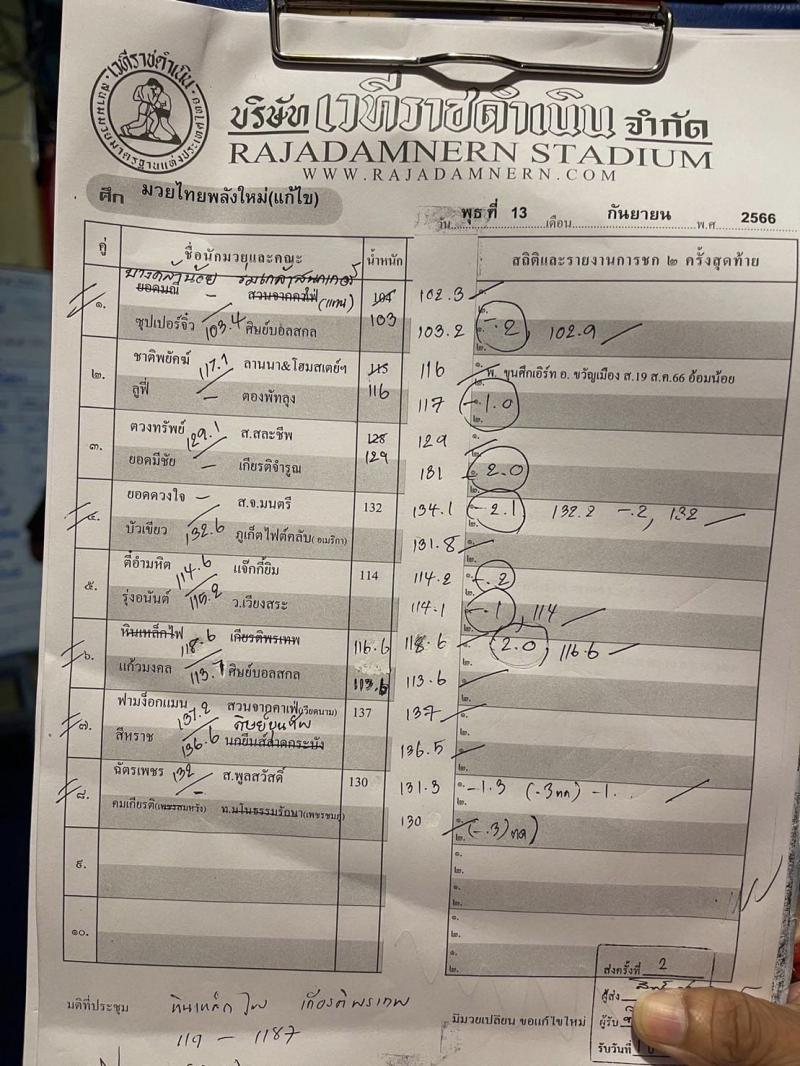 เวทีราชดำเนิน
สนามมวยมาตรฐานแห่งประเทศไทย
บริษัท เวทีราชดำเนิน จำกัด
RAJADAMNERN STADIUM
WWW.RAJADAMNERN.COM
ศึก มวยไทยพลังใหม่(แก้ไข)
วัน พุธ ที่ 13 เดือน กันยายน พ.ศ 2566
คู่ ชื่อนักมวยและคณะ น้ำหนัก สถิติและรายงานการชก ๒ ครั้งสุดท้าย
บางคล้าน้อย
๑. ยอดมณี – สวนจากคาเฟ่ (แทน) 104 102.3 ๑.
ซุปเปอร์จิ๋ว 103.4 ศิษย์บอลสกล 103 103.2 -.2, 102.9
๒. ชาติพยัคฆ์ 117.1 ลานนา&โฮมสเตย์ฯ 115 116 ๑. พ. ขุนศึกเอิร์ท อ. ขวัญเมือง ส.19 ส.ค.66 อ้อมน้อย
ลูฟี่ – ตองพัทลุง 116 117 -1.0
๓. ดวงทรัพย์ 129.1 ส.สละชีพ 128 129 ๑.
ยอดมีชัย – เกียรติจำรูญ 129 131 2.0
๔. ยอดดวงใจ – ส.จ.มนตรี 132 134.1 -2.1 132.2 -.2, 132
บัวเขียว 132.6 ภูเก็ตไฟต์คลับ(อเมริกา) 131.8
๕. ตี๋อำมหิต 114.6 แจ๊กกี้ยิม 114 114.2 -.2
รุ่งอนันต์ 115.2 ว.เวียงสระ 114.1 -.1, 114
๖. หินเหล็กไฟ 118.6 เกียรติพรเทพ 116.6 118.6 2.0, 116.6
แก้วมงคล 113.7 ศิษย์บอลสกล 113.6 113.6
๗. ฟามง็อกแมน 137.2 สวนจากคาเฟ่(เวียดนาม) 137 137
สีหราช 136.6 นกยีนส์ลาดกระบัง 136.5
๘. ฉัตรเพชร 132 ส.พูลสวัสดิ์ 130 131.3 ๑. -1.3 (-.3 ทด) -1.
คมเกียรติ – 130 (-.3) ทด)
๙. ๑.
๒.
๑.
๒.
๑๐. ๑.
๒.
๑.
๒.
ส่งครั้งที่ 2
ผู้ส่ง
ผู้รับ
รับวันที่
มติที่ประชุม หินเหล็กไฟ เกียรติพรเทพ
มีมวยเปลี่ยน ขอแก้ไขใหม่
119 – 1187